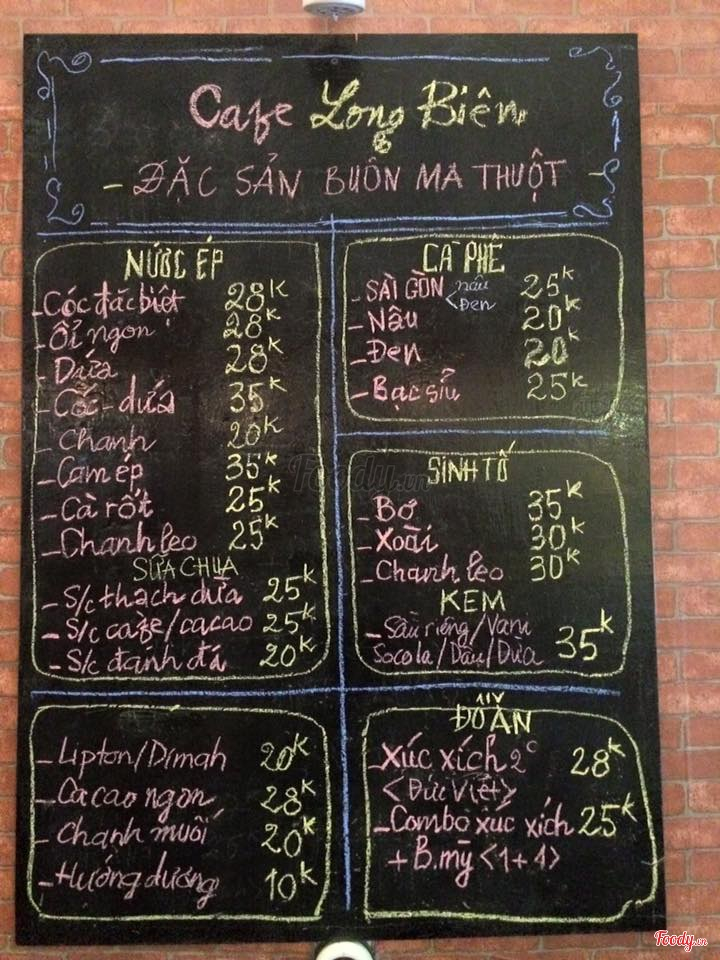 Cafe Long Biên
- ĐẶC SẢN BUÔN MA THUỘT -
NƯỚC ÉP
- Cóc đặc biệt 28k
- Ổi ngon 28k
- Dứa 28k
- Cóc - dứa 35k
- Chanh 20k
- Cam ép 35k
- Cà rốt 25k
- Chanh leo 25k
SỮA CHUA
- S/c thạch dừa 25k
- S/c cafe/cacao 25k
- S/c đánh đá 20k
CÀ PHÊ
- SÀI GÒN < nâu 25k
Đen
- Nâu 20k
- Đen 20k
- Bạc sỉu 25k
SINH TỐ
- Bơ 35k
- Xoài 30k
- Chanh leo 30k
KEM
- Sầu riêng/Vani
Socola/Dâu/Dừa 35k
- Lipton/Dimah 20k
- Cacao ngon 28k
- Chanh muối 20k
- Hướng dương 10k
ĐỒ ĂN
- Xúc xích 2c 28k
<Đức Việt>
- Combo xúc xích 25k
+ B.mỳ <1+1>
Foody.vn
Foody.vn